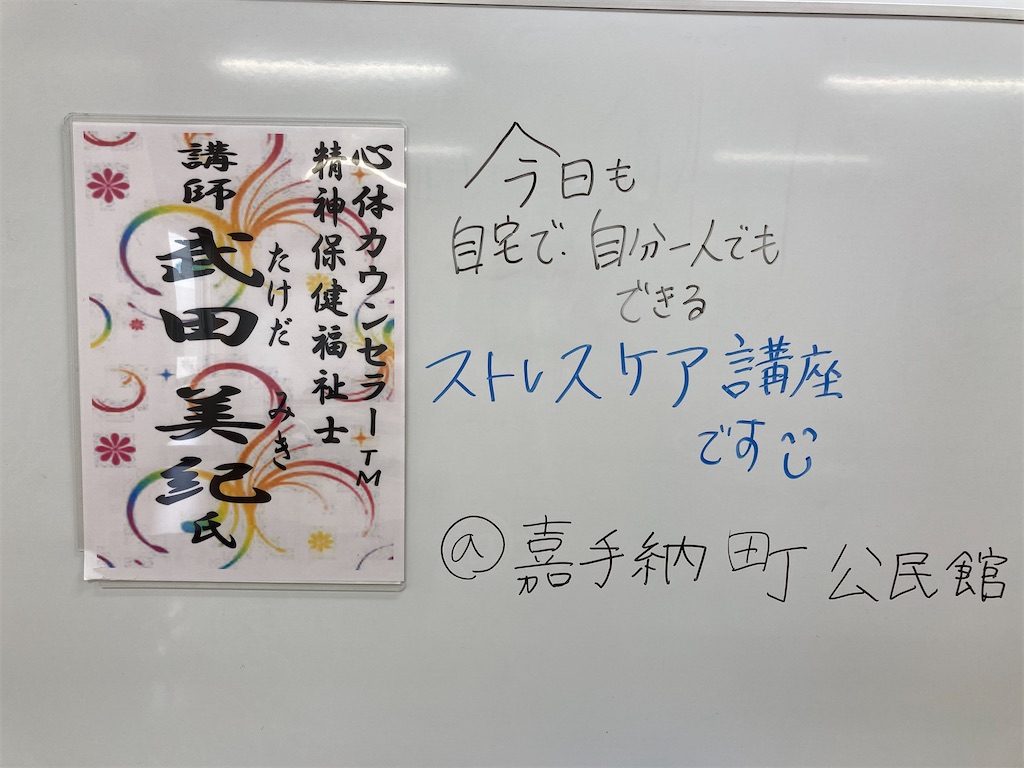 心体カウンセラーTM
精神保健福祉士
たけだ みき
講師 武田 美紀 氏
今日も
自宅で、自分一人でも
できる
ストレスケア講座
です
@嘉手納町公民館